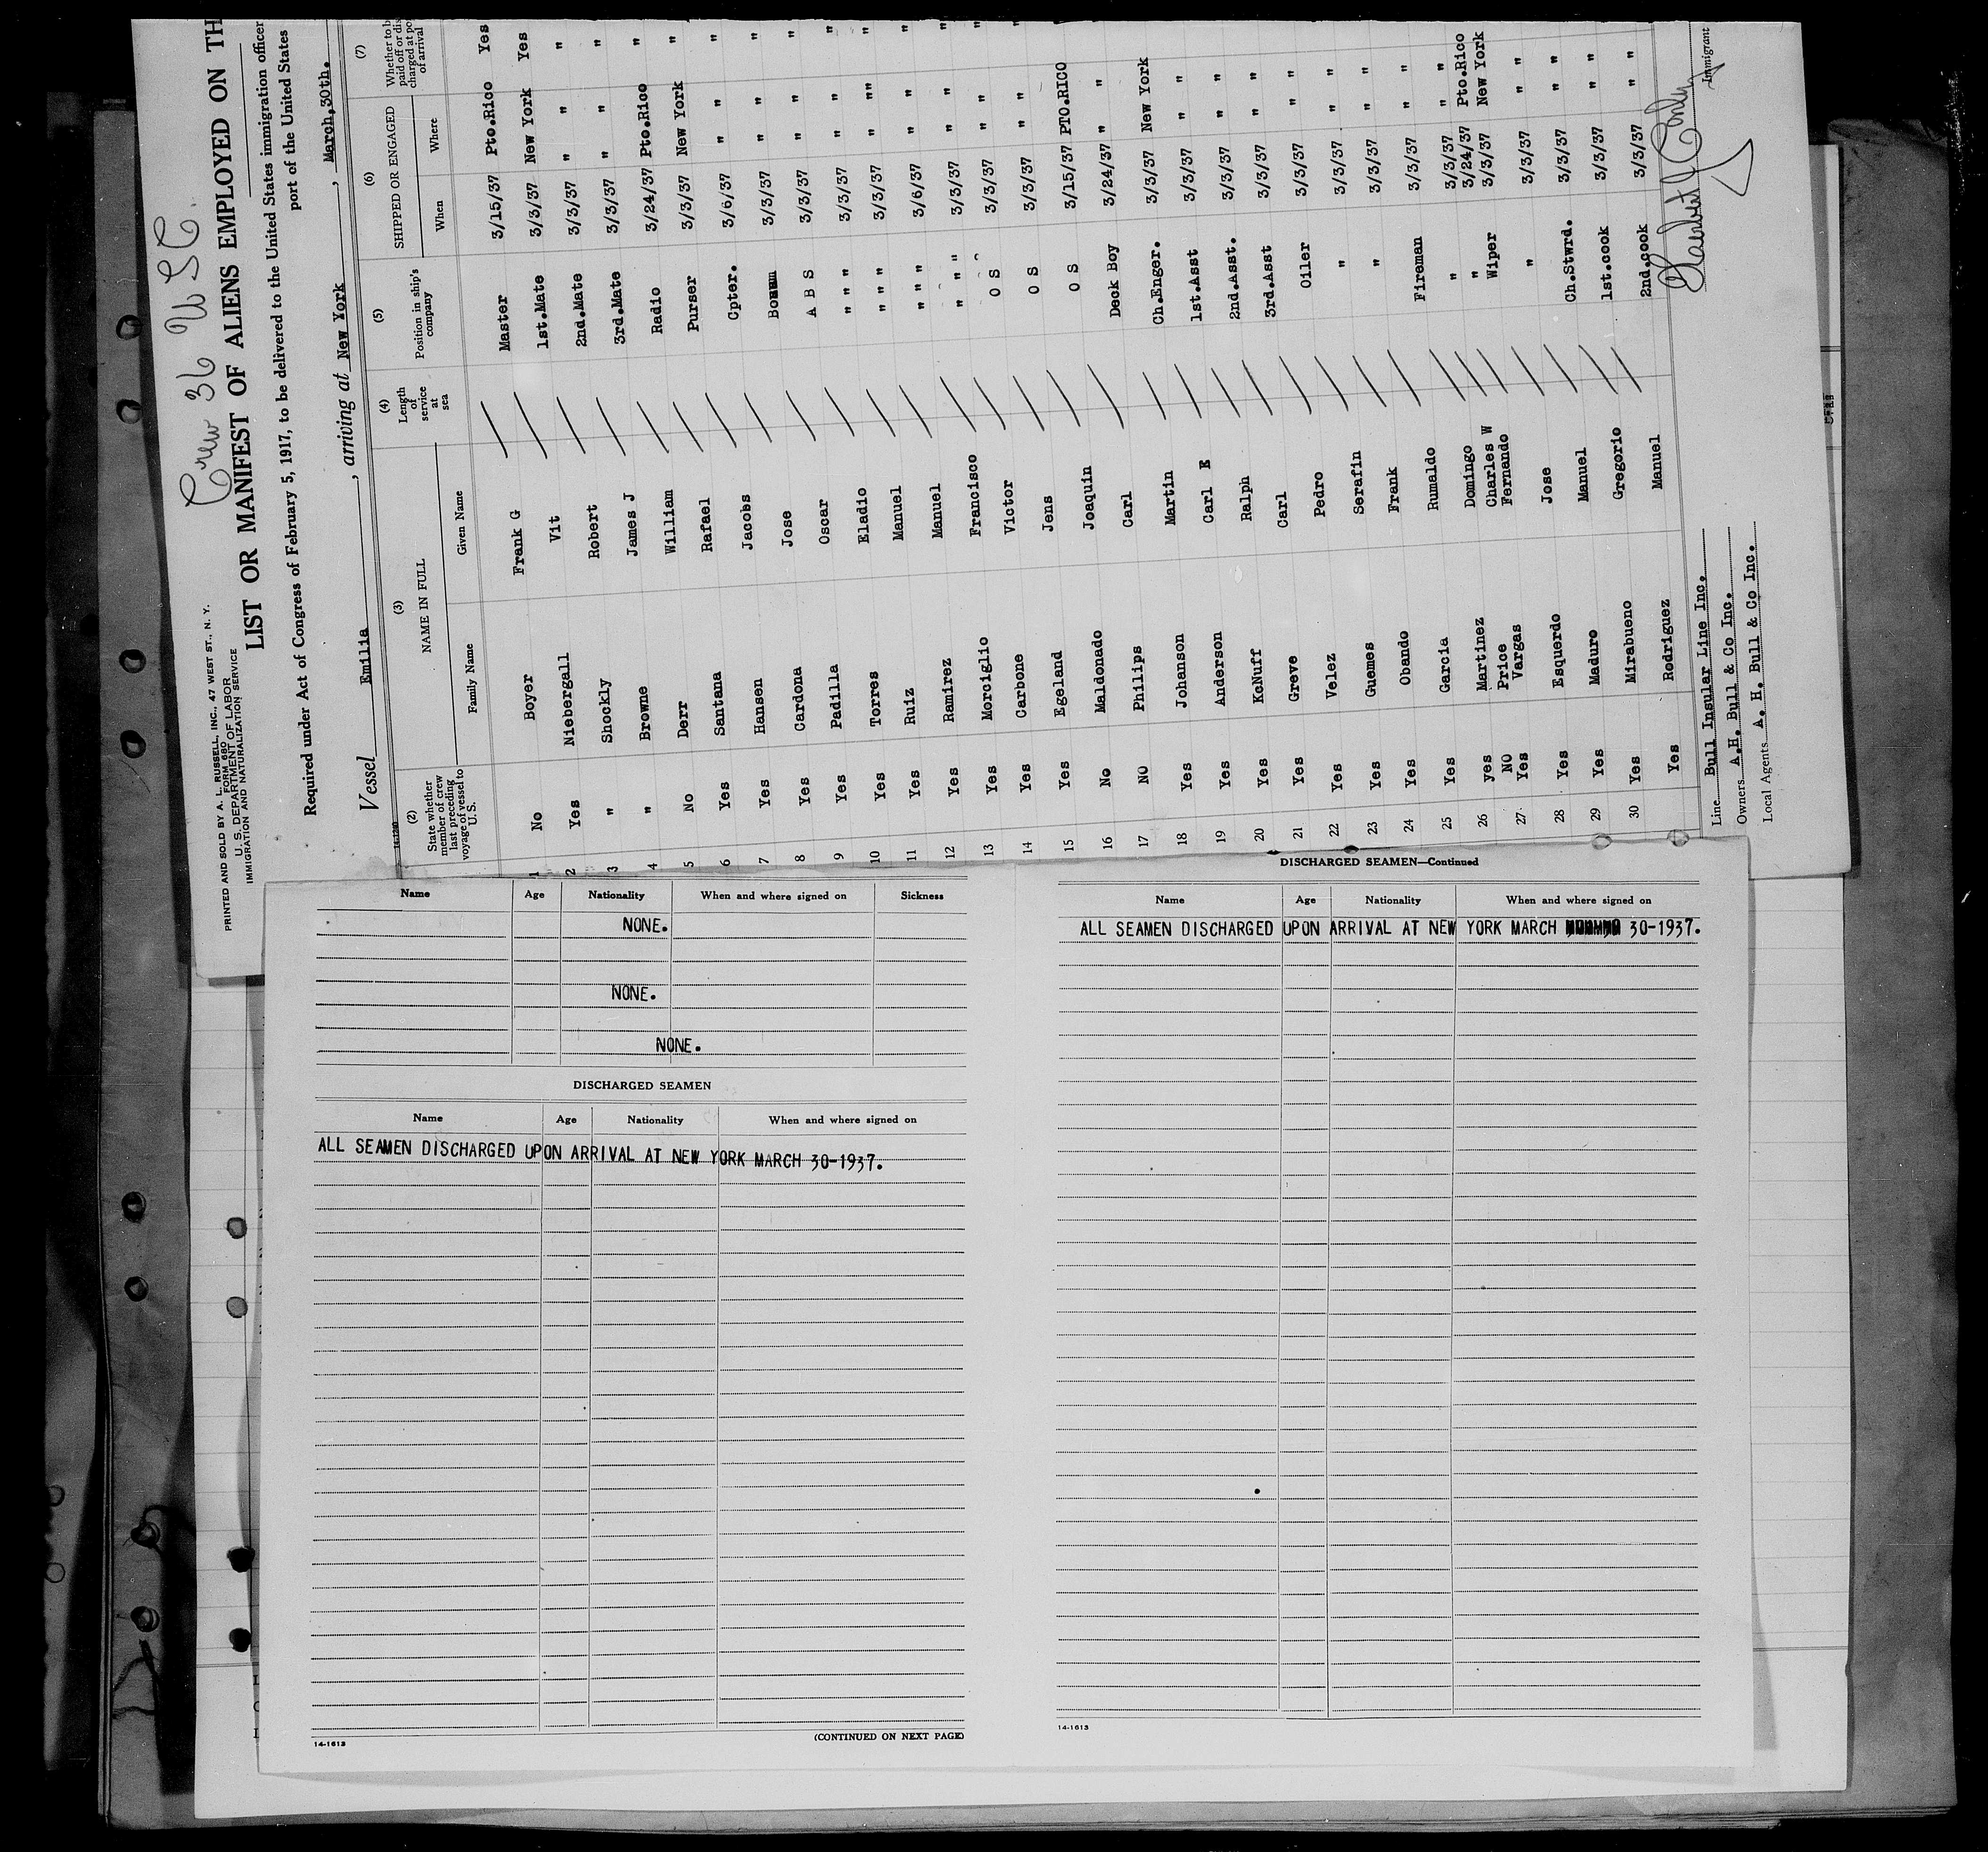 Crew 36 USC.
PRINTED AND SOLD BY A. L. RUSSELL, INC., 47 WEST ST., N. Y.
FORM 680
U. S. DEPARTMENT OF LABOR
IMMIGRATION AND NATURALIZATION SERVICE
LIST OR MANIFEST OF ALIENS EMPLOYED ON TH
Required under Act of Congress of February 5, 1917, to be delivered to the United States immigration officer
port of the United States
Vessel Emilia , arriving at New York , March,30th.
(2) State whether member of crew last preceding voyage of vessel to U.S. (3) NAME IN FULL Family Name Given Name (4) Length of service at sea (5) Position in ship's company (6) SHIPPED OR ENGAGED When Where (7) Whether to b paid off or dis charged at po of arrival
1 No Boyer Frank G Master 3/15/37 Pto.Rico Yes
2 Yes Niebergall Vit 1st.Mate 3/3/37 New York Yes
3 " Shockly Robert 2nd.Mate 3/3/37 " "
4 " Browne James J 3rd.Mate 3/3/37 " "
5 No Derr William Radio 3/24/37 Pto.Rico "
6 Yes Santana Rafael Purser 3/3/37 New York "
7 Yes Hansen Jacobs Cpter. 3/6/37 " "
8 Yes Cardona Jose 3/3/37 " "
9 Yes Padilla Oscar A B S 3/3/37 " "
10 Yes Torres Eladio " " " 3/3/37 " "
11 Yes Ruiz Manuel " " " 3/3/37 "" "
12 Yes Ramirez Manuel " " " 3/6/37 " "
13 Yes Morciglio Francisco " " " 3/3/37 " "
14 Yes Carbone Victor O S 3/3/37 " "
15 Yes Egeland Jens O S 3/3/37 " "
16 No Maldonado Joaquin O S 3/15/37 PTO.RICO
17 NO Philips Carl Deck Boy 3/24/37 " "
18 Yes Johanson Martin Ch.Enger. 3/3/37 New York
19 Yes Anderson Carl E 1st.Asst 3/3/37 " "
20 Yes McNuff Ralph 2nd.Asst. 3/3/37 " "
21 Yes Greve Carl 3rd.Asst 3/3/37 " "
22 Yes Velez Pedro Oiler 3/3/37 " "
23 Yes Guemes Serafin " 3/3/37 " "
24 Yes Obando Frank " 3/3/37 " "
25 Yes Garcia Rumaldo Fireman 3/3/37 " "
26 yes Martinez Domingo " 3/3/37 " "
NO Price Charles W " 3/24/37 Pto.Rico
27 Yes Vargas Fernando Wiper 3/3/37 New York
28 Yes Esquerdo Jose " 3/3/37 " "
29 Yes Maduro Manuel Ch.Stwrd. 3/3/37 " "
30 Yes Mirabueno Gregorio 1st.cook 3/3/37 " "
Yes Rodriguez Manuel 2nd.cook 3/3/37 " "
Line Bull Insular Line Inc.
Owners A.H. Bull & Co Inc.
Local Agents A. H. Bull & Co Inc.
Immigrant
Name Age Nationality When and where signed on Sickness
NONE.
NONE.
NONE.
DISCHARGED SEAMEN
Name Age Nationality When and where signed on
ALL SEAMEN DISCHARGED UPON ARRIVAL AT NEW YORK MARCH 30-1937.
14-1613
(CONTINUED ON NEXT PAGE)
DISCHARGED SEAMEN—Continued
Name Age Nationality When and where signed on
ALL SEAMEN DISCHARGED UPON ARRIVAL AT NEW YORK MARCH 30-1937.
14-1613